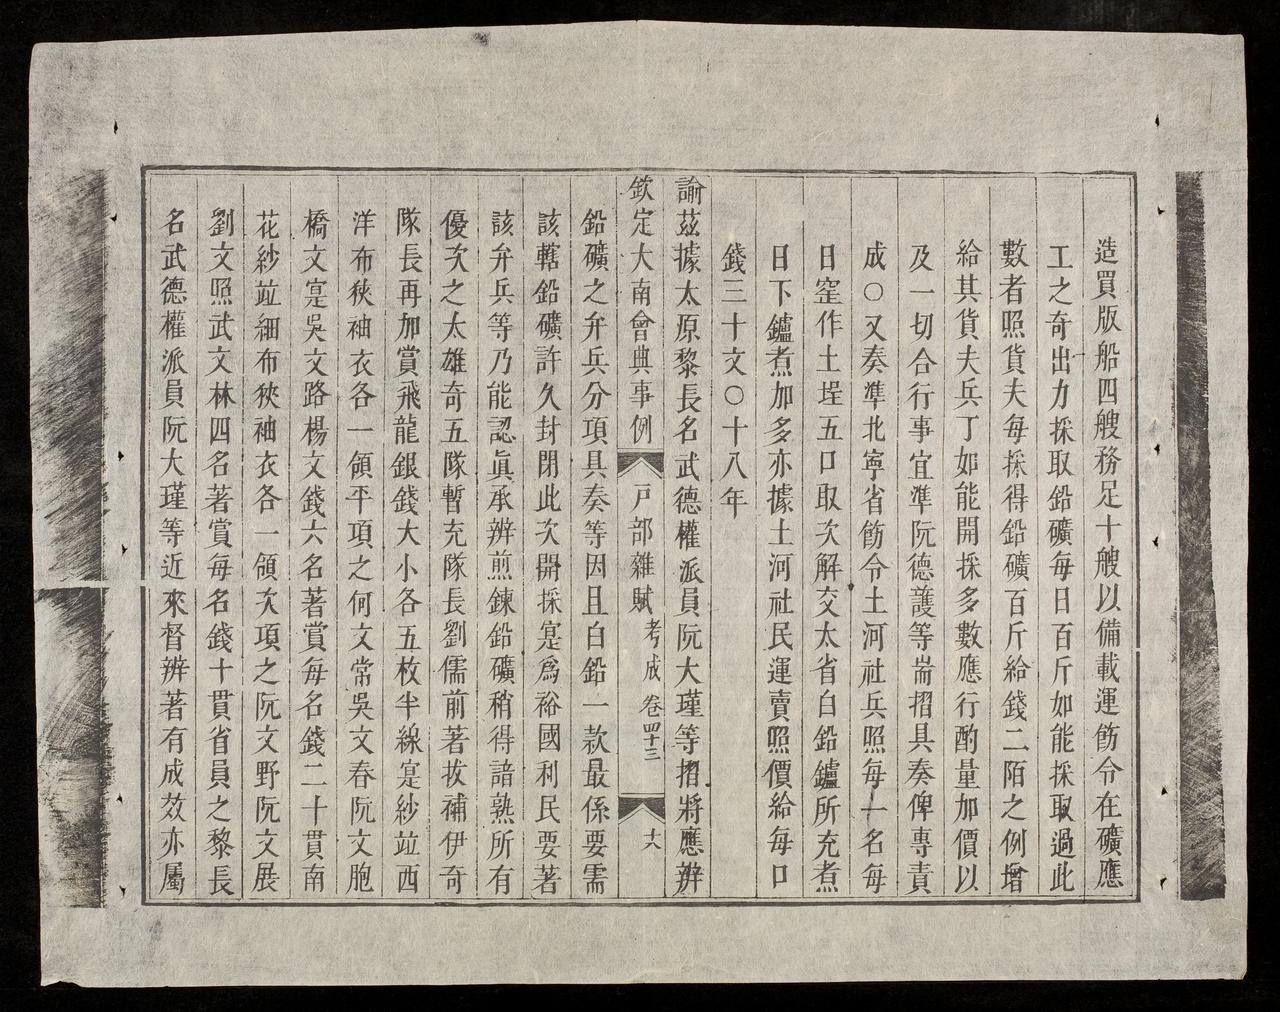 造買版船四艘務足十艘以備載運飭令在礦應
工之奇出力採取鉛礦每日百斤如能採取過此
數者照貨夫每採得鉛礦百斤給錢二陌之例增
給其貨夫兵丁如能開採多數應行酌量加價以
及一切合行事宜準阮德護等耑摺具奏俾專責
成○又奏準北寧省飭令土河社兵照每十名每
日窑作土埕五口取次解交太省白鉛鑪所充煮
日下鑪煮加多亦據土河社民運賣照價給每口
錢三十文○十八年
諭茲據太原黎長名武德權派員阮大瑾等摺將應辨
欽定大南會典事例 戸部雜賦 考成 卷四十三 十六
鉛礦之弁兵分項具奏等因且白鉛一款最係要需
該轄鉛礦許久封閉此次開採寔為裕國利民要著
該弁兵等乃能認眞承辨煎鍊鉛礦稍得諳熟所有
優次之太雄奇五隊暫充隊長劉儒前著拔補伊奇
隊長再加賞飛龍銀錢大小各五枚半線寔紗竝西
洋布狹袖衣各一領平項之何文常吳文春阮文胞
橋文寔吳文路楊文錢六名著賞每名錢二十貫南
花紗竝細布狹袖衣各一領次項之阮文野阮文展
劉文照武文林四名著賞每名錢十貫省員之黎長
名武德權派員阮大瑾等近來督辨著有成效亦屬